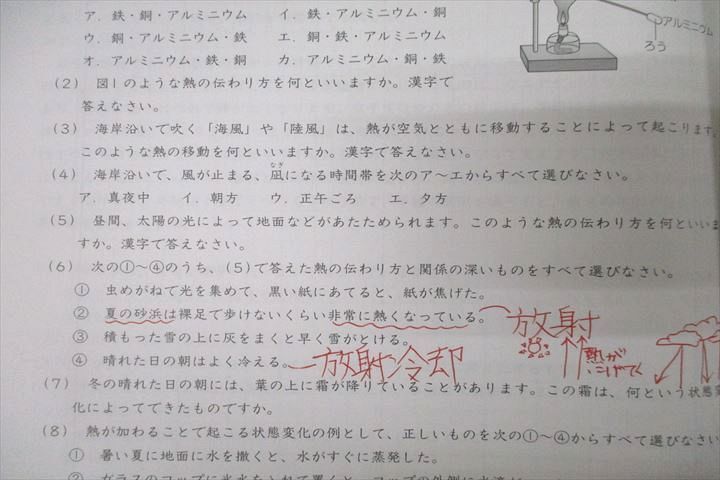 ア．鉄・銅・アルミニウム　イ．鉄・アルミニウム・銅
ウ．銅・アルミニウム・鉄　エ．銅・鉄・アルミニウム
オ．アルミニウム・鉄・銅　カ．アルミニウム・銅・鉄
アルミニウム
ろう
(2) 図1のような熱の伝わり方を何といいますか。漢字で
答えなさい。
(3) 海岸沿いで吹く「海風」や「陸風」は、熱が空気とともに移動することによって起こります
このような熱の移動を何といいますか。漢字で答えなさい。
なぎ
(4) 海岸沿いで、風が止まる、凪になる時間帯を次のア～エからすべて選びなさい。
ア．真夜中　イ．朝方　ウ．正午ごろ　エ．夕方
(5) 昼間、太陽の光によって地面などがあたためられます。このような熱の伝わり方を何といいま
すか。漢字で答えなさい。
(6) 次の①～④のうち、(5)で答えた熱の伝わり方と関係の深いものをすべて選びなさい。
① 虫めがねで光を集めて、黒い紙にあてると、紙が焦げた。
② 夏の砂浜は裸足で歩けないくらい非常に熱くなっている。
放射
③ 積もった雪の上に灰をまくと早く雪がとける。
熱が
にげてく
④ 晴れた日の朝はよく冷える。
放射冷却
(7) 冬の晴れた日の朝には、葉の上に霜が降りていることがあります。この霜は、何という状態変
化によってできたものですか。
(8) 熱が加わることで起こる状態変化の例として、正しいものを次の①～④からすべて選びなさい
① 暑い夏に地面に水を撒くと、水がすぐに蒸発した。